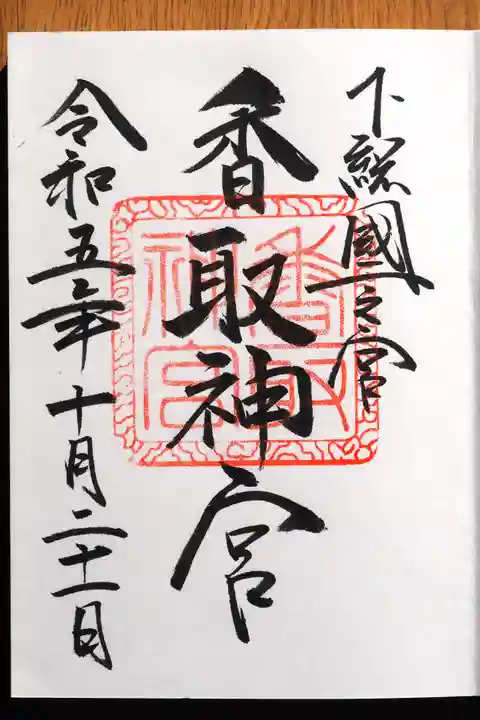 下総國一之宮
香取神宮
香取神宮
令和五年十月二十一日